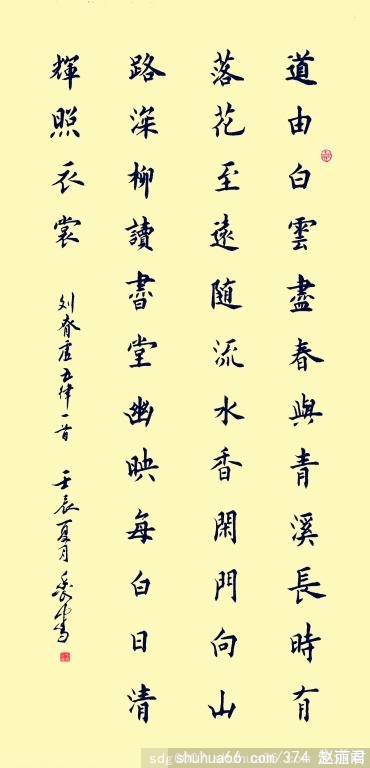 道由白雲盡春與青溪長時有
落花至遠隨流水香閑門向山
路深柳讀書堂幽映每白日清
輝照衣裳
刘眘虚五律一首 壬辰夏月
shuhua66 con/374 赵丽君